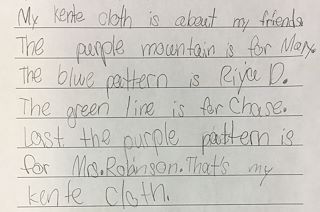 My kente cloth is about my friends.
The purple mountain is for Max.
The blue pattern is Riya D.
The green line is for Chase.
Last the purple pattern is
for Mrs. Robinson. That's my
kente cloth.